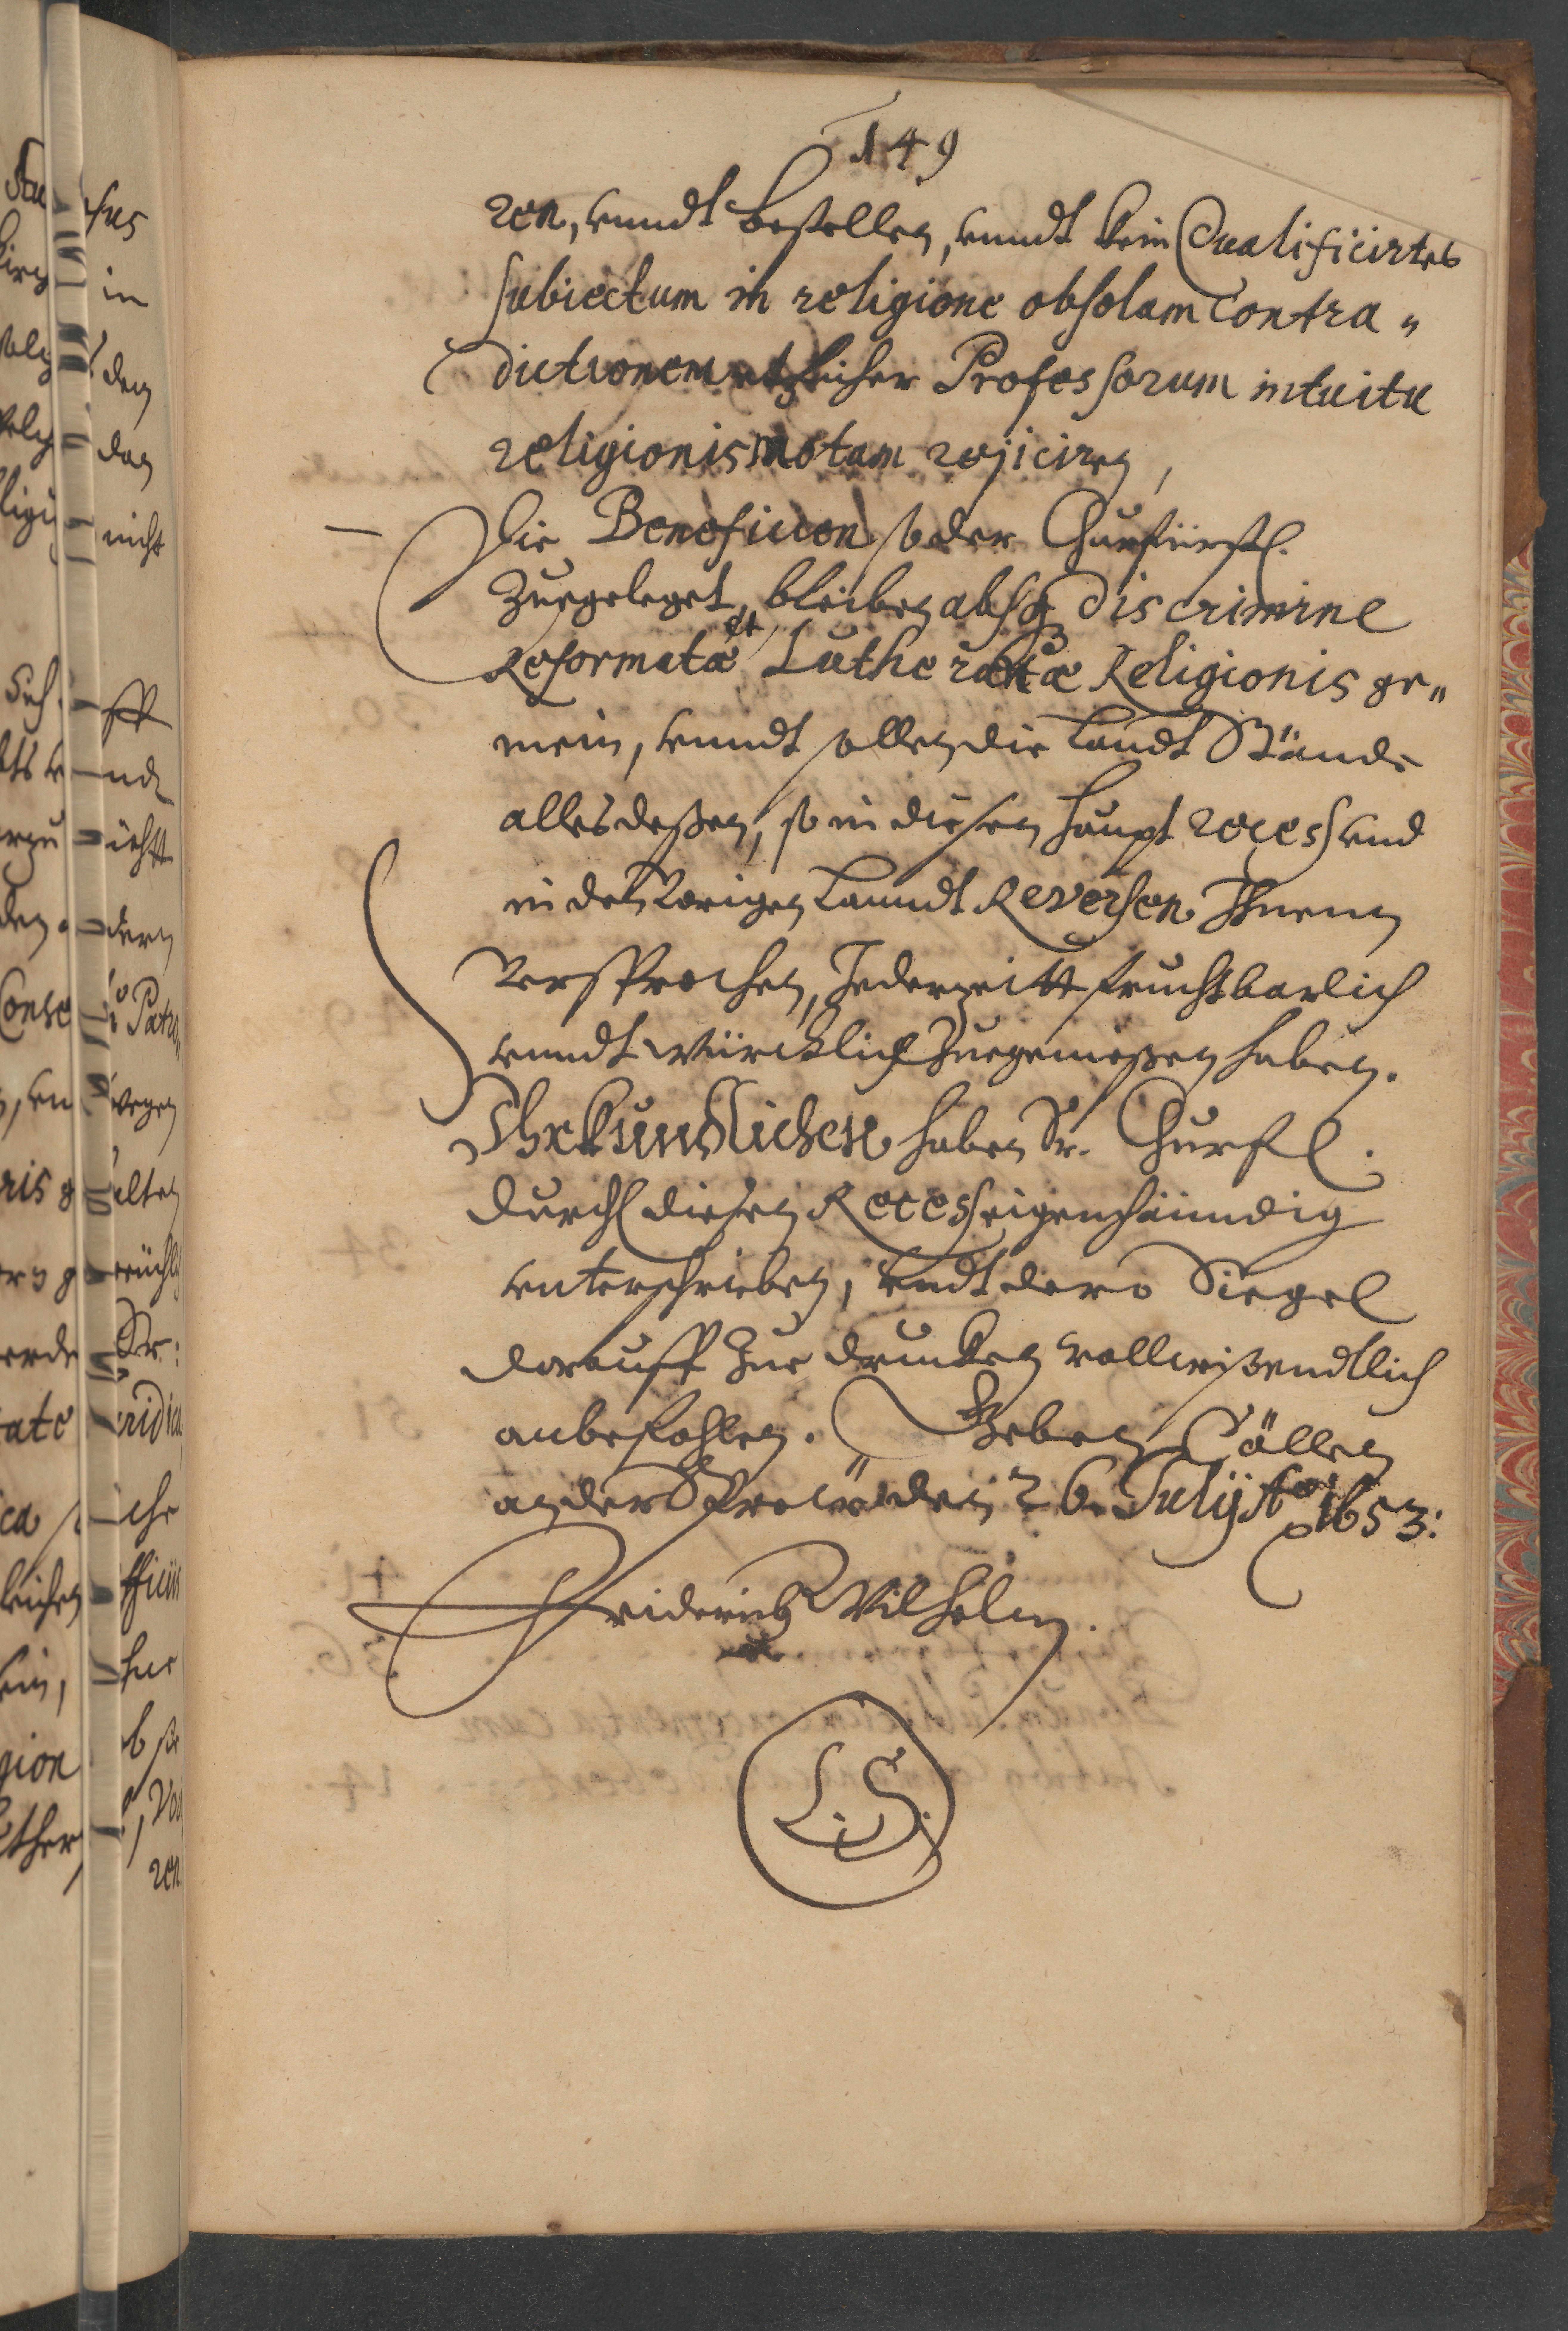 149
ren, unndt bestellen, unndt kein Qualificirtes
subiectum in religione ob solam contra„
dictionem etzlicher Professorum intuitu
religionis motam rejiciren,
Die Beneficien so der Churfürstl.
Zuegeleget, bleiben absq discrimine
Reformatæ et Lutheranæ Religionis ge„
mein, unndt sollen die Landt Stände
alles deßen, so in diesen Haupt recess und
in den Vorigen Lanndt Reversen Ihnen
Versprochen, Jederzeitt fruchtbarlich
unndt würcklich Zuegenießen haben.
Uhrkundlichen haben Sr. Churfl.
Durchl diesen Recess eigenhänndig
unterschrieben, undt dero Siegel
darauff Zue drucken vollwißendtlich
anbefohlen. Geben Cöllen
an der Spree den 26. Julij Ao 1653.
Friderich Wilhelm.
L. S.